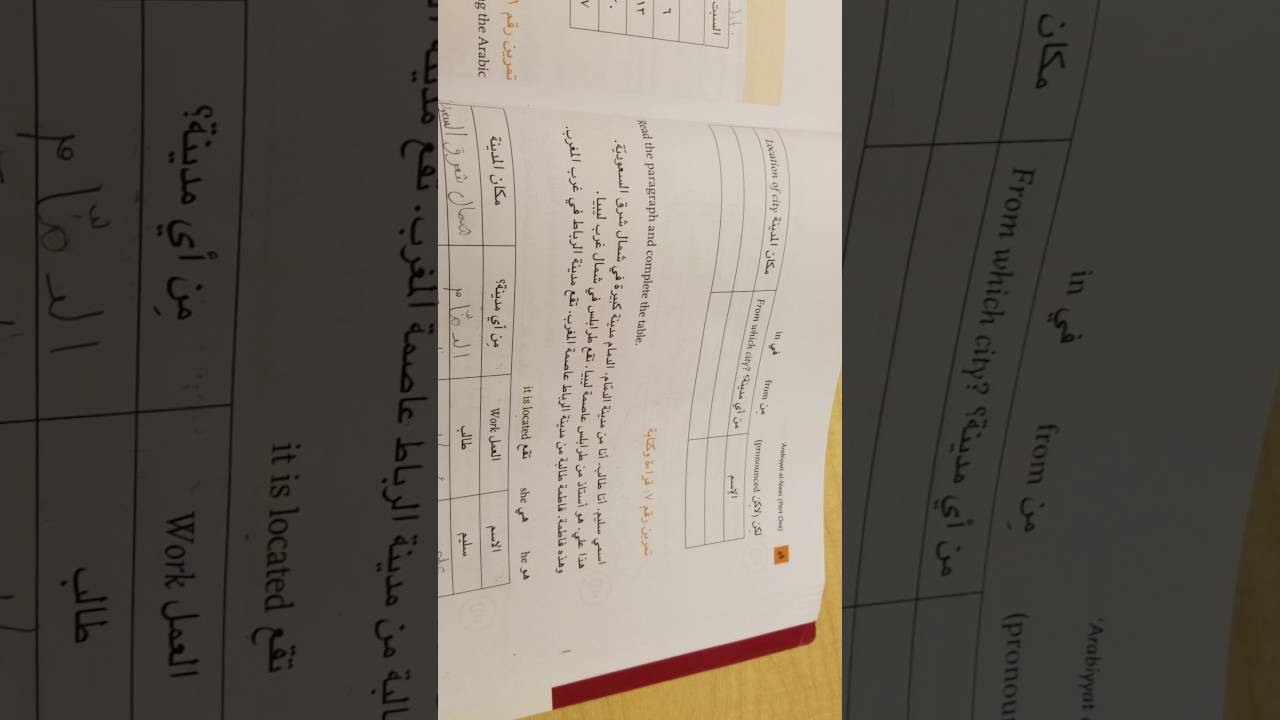 'Arabiyyat al-Naas (Part One)
في in من from لكن (لاكن pronounced)
الإسم من أي مدينة؟ From which city? مكان المدينة Location of city
تمرين رقم ٧: قراءة وكتابة
Read the paragraph and complete the table.
اسمي سليم. أنا طالب. أنا من مدينة الدمّام. الدمام مدينة كبيرة في شمال شرق السعوديّة.
هذا علي. هو أستاذ من طرابلس عاصمة ليبيا. تقع طرابلس في شمال غرب ليبيا.
وهذه فاطمة. فاطمة طالبة من مدينة الرباط عاصمة المغرب. تقع مدينة الرباط في غرب المغرب.
هو he هي she تقع it is located
الاسم العمل Work مِن أي مدينة؟ مكان المدينة
سليم طالب الدمّام شمال شرق
تمرين رقم
ng the Arabic
السبت
٦
١٣
٧